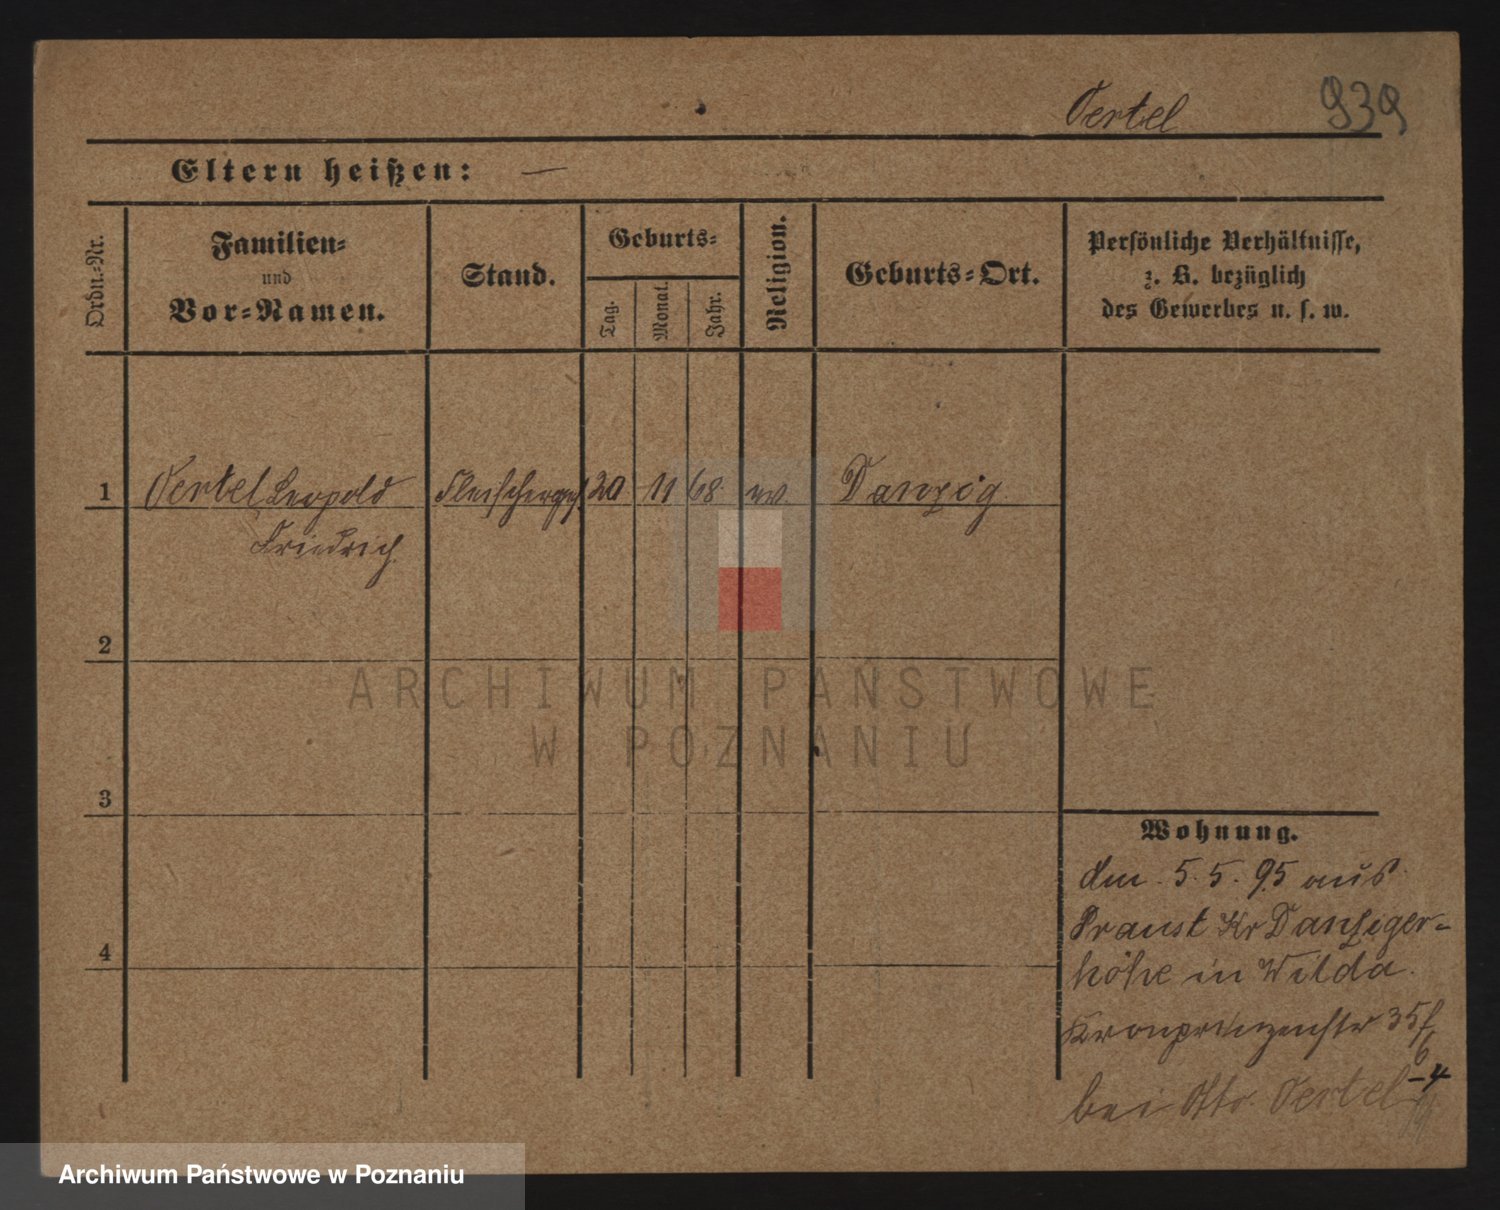 Oertel 939
Eltern heißen: —
Ordn.-Nr.
Familien-
und
Vor-Namen.
Stand.
Geburts-
Tag.
Monat.
Jahr.
Religion.
Geburts-Ort.
Persönliche Verhältnisse,
z. B. bezüglich
des Gewerbes u. s. w.
1 Oertel Leopold Fleischerges. 20 11 68. ev. Danzig.
Friedrich
2
ARCHIWUM PAŃSTWOWE
W POZNANIU
3
Wohnung.
den 5.5.95 aus
Praust Kr Danziger-
höhe in Wilda.
4
Kronprinzenstr 35f
bei Oertel
Archiwum Państwowe w Poznaniu